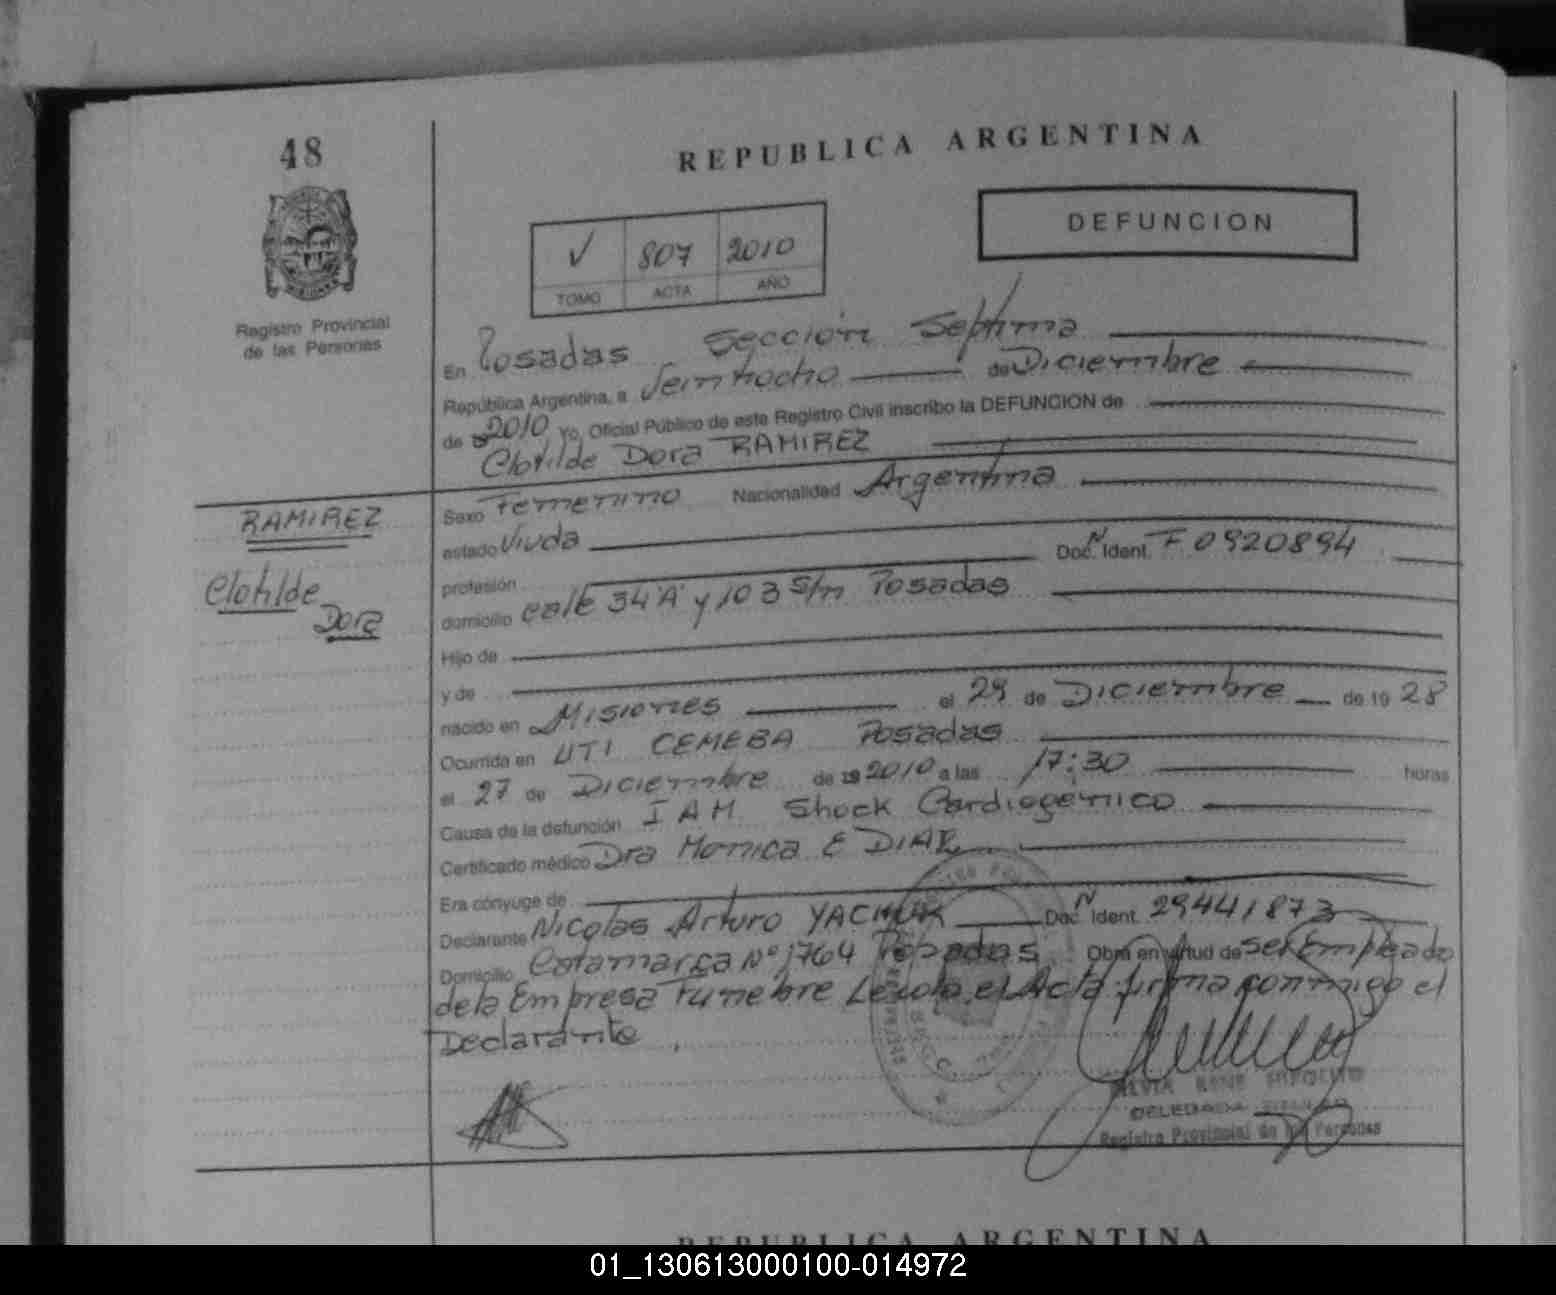 48
REPUBLICA ARGENTINA
DEFUNCION
✓ 807 2010
TOMO ACTA AÑO
Registro Provincial
de las Personas
En Posadas Sección Septima
República Argentina, a Veintiocho de Diciembre
de 2010 Yo, Oficial Público de este Registro Civil inscribo la DEFUNCION de
Clotilde Dora RAMIREZ
RAMIREZ
Clotilde
Dora
Sexo Femenino Nacionalidad Argentina
estado Viuda
profesión Doc. N Ident. F 0920894
domicilio calle 34 "A" y 103 s/n Posadas
Hijo de
y de
nacido en Misiones el 29 de Diciembre de 19 28
Ocurrida en UTI CEMEBA Posadas
el 27 de Diciembre de 19 2010 a las 17:30 horas
Causa de la defunción I A M Shock Cardiogénico
Certificado médico Dra Monica E DIAR
Era cónyuge de
Declarante Nicolas Arturo YACHUK Doc. N Ident. 29441873
Domicilio Catamarca Nº 1764 Posadas Obra en virtud de ser Empleado
de la Empresa Funebre Leida el Acta firma conmigo el
Declarante
Registro Provincial de las Personas
REPUBLICA ARGENTINA
01_130613000100-014972